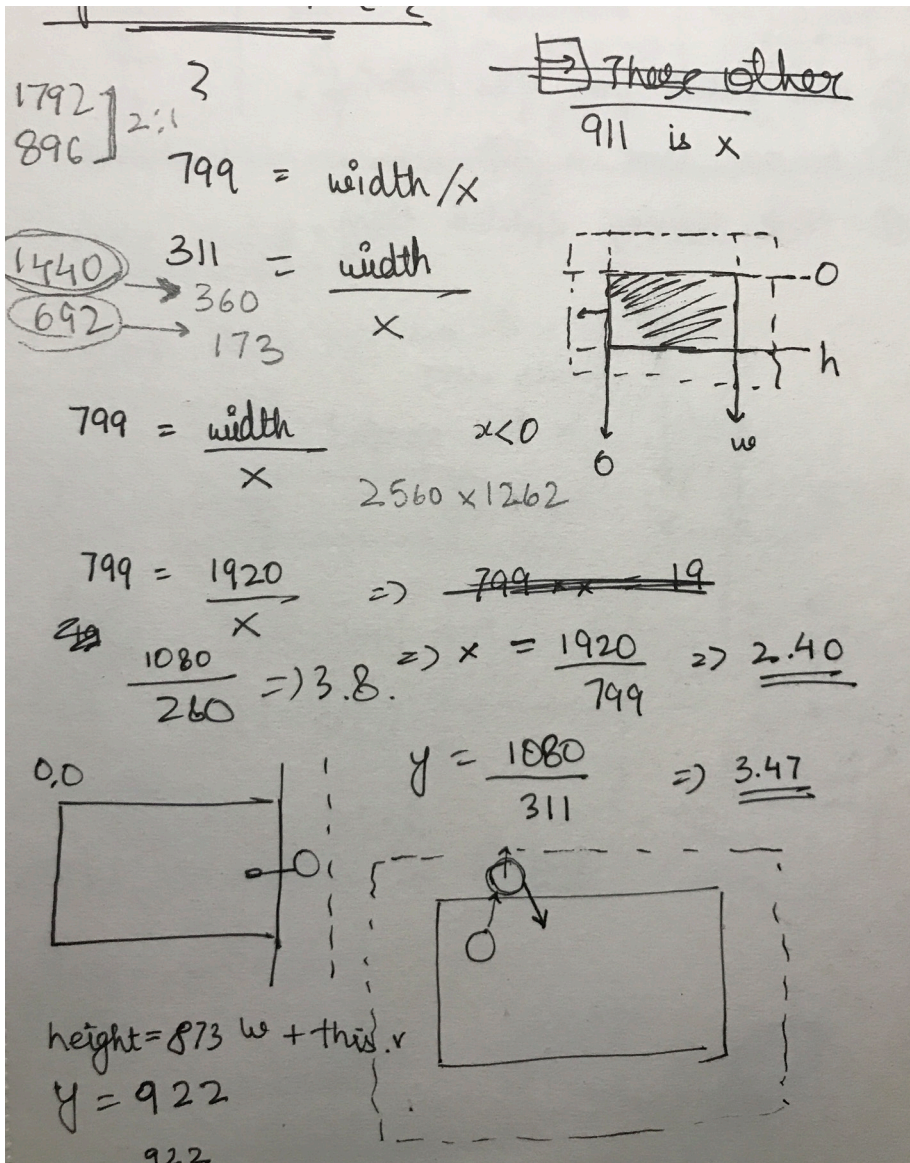 1792
896 ] 2:1
These other
911 is x
799 = width/x
1440 → 360
692 → 173
311 = width
x
0
h
0
w
799 = width
x
x<0
2560 x 1262
799 = 1920
x
=> 799 x = 19
1080
260 => 3.8.
=> x = 1920
799 => 2.40
y = 1080
311 => 3.47
0,0
height = 873 w + this.r
y = 922
922